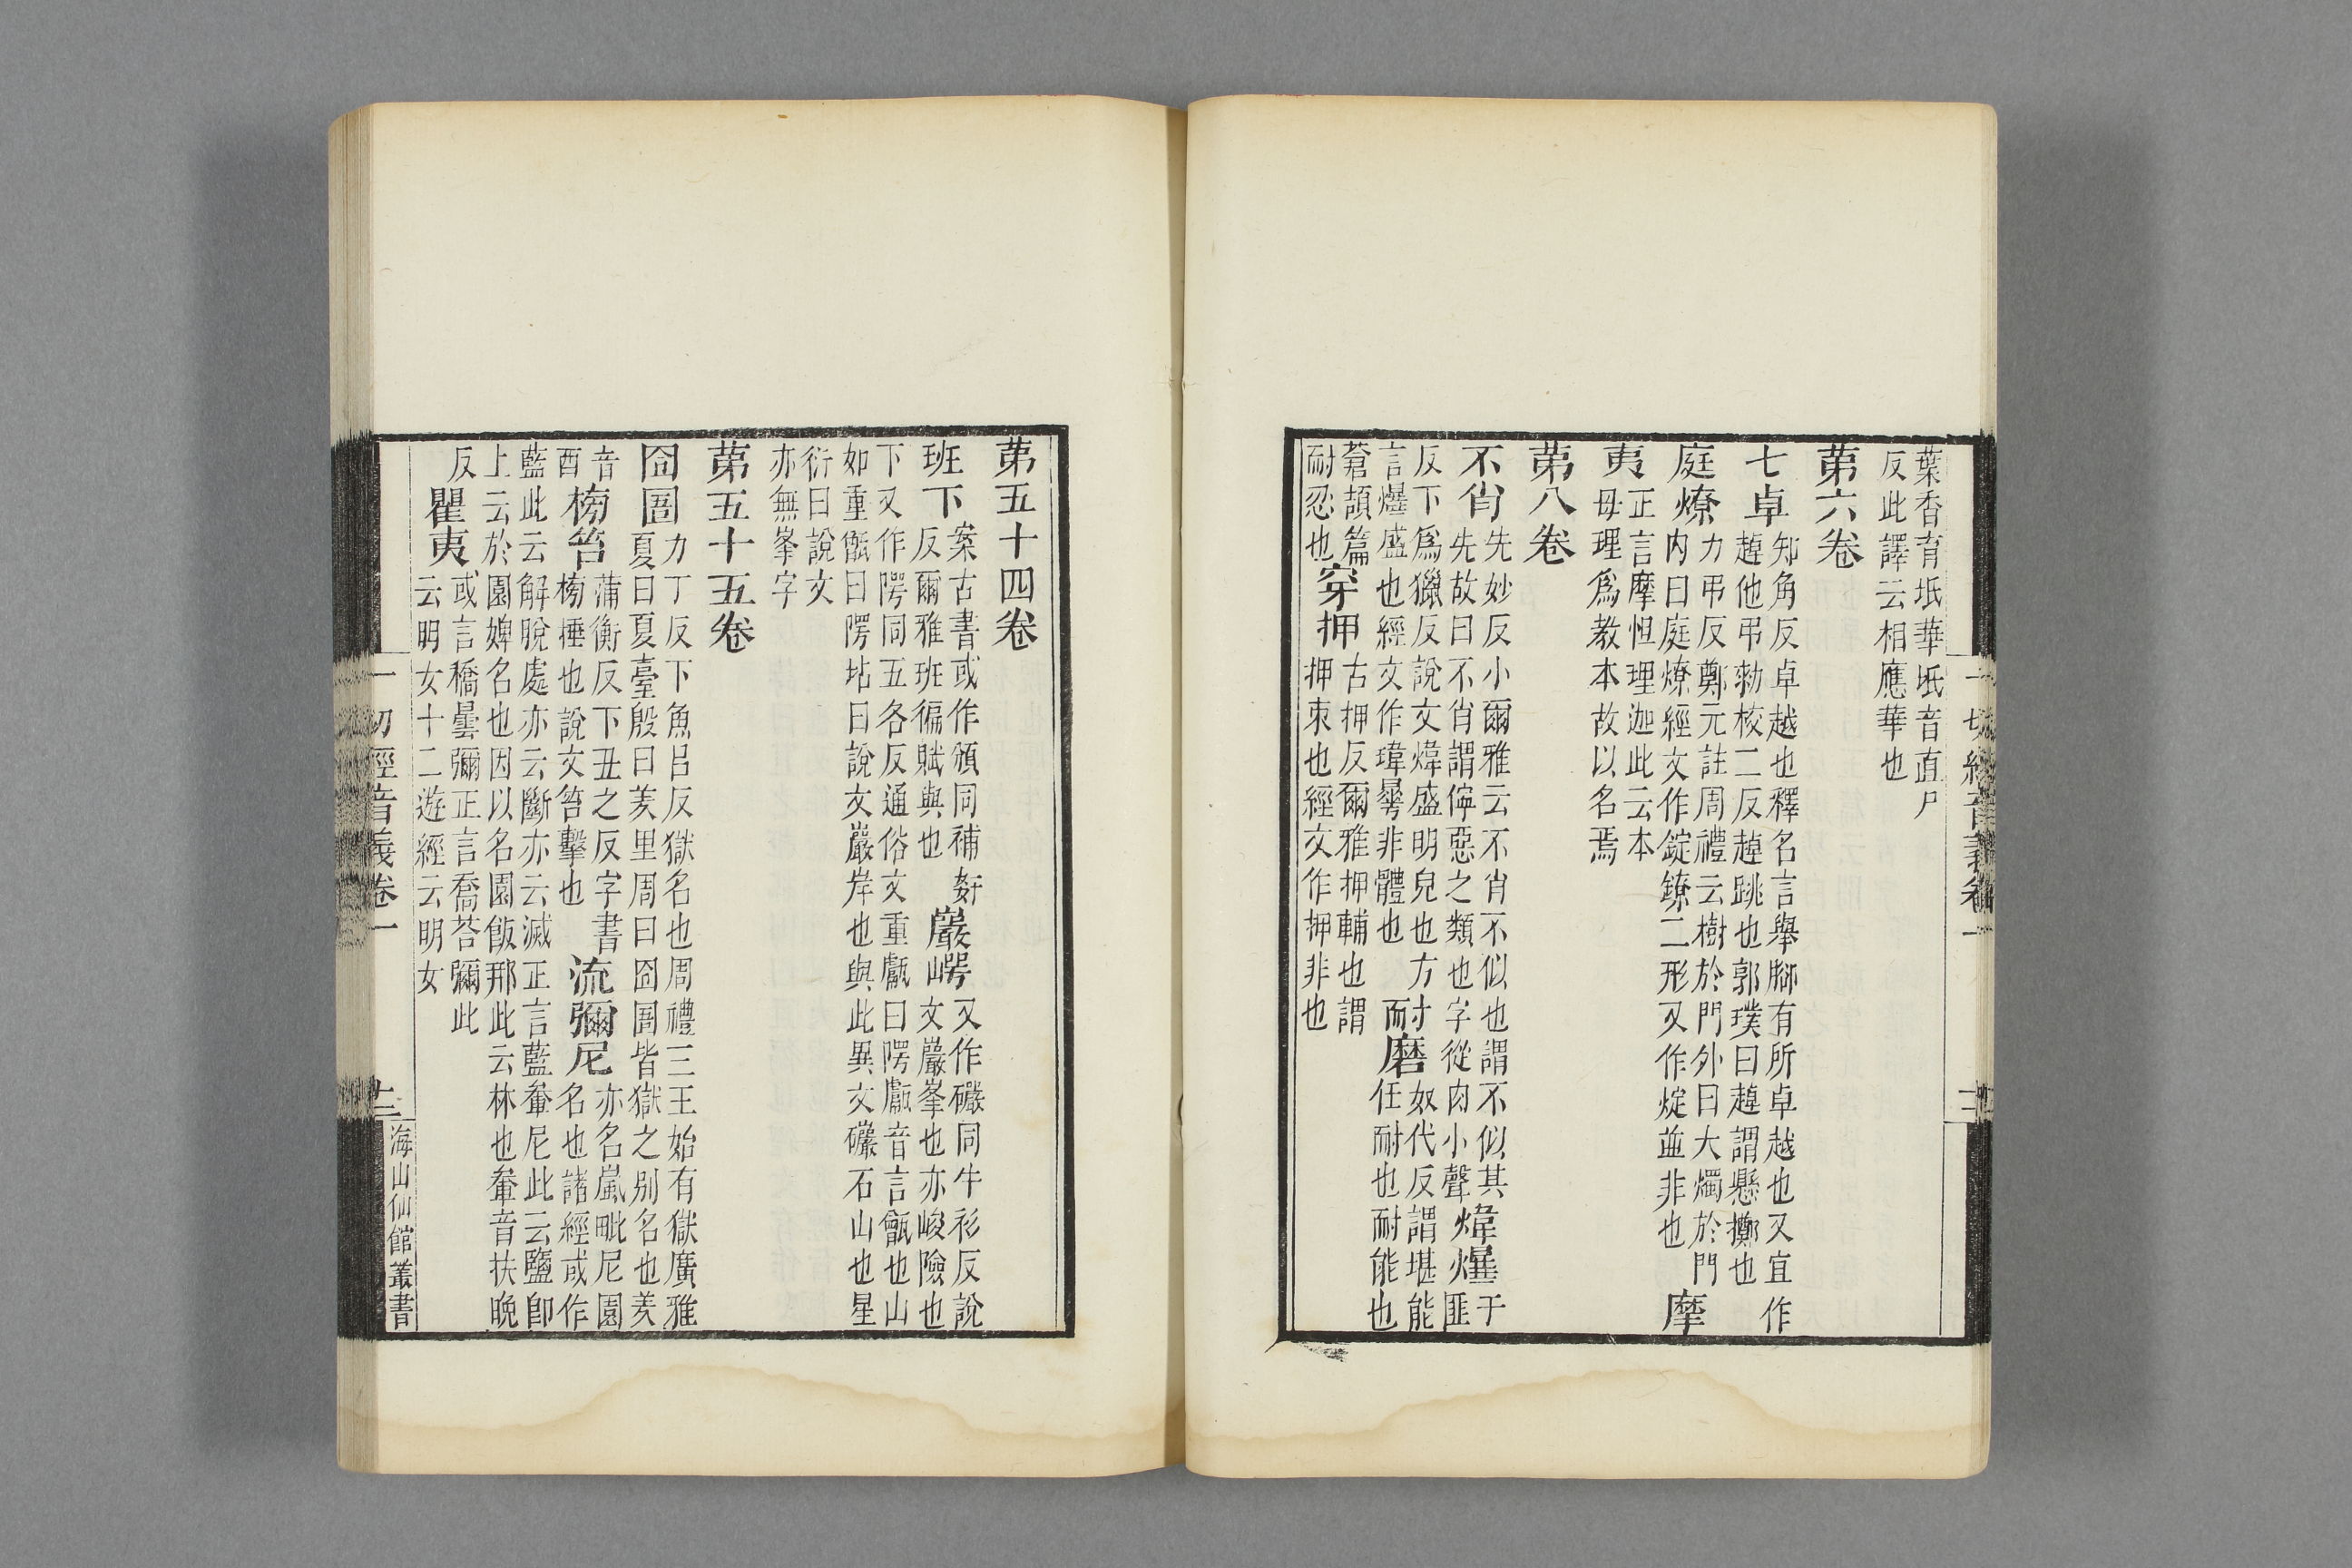 葉香育坻華坻音直尸
反此譯云相應華也
第六卷
七卓
知角反卓越也釋名言舉腳有所卓越也又宜作
趠他弔勑校二反趠跳也郭璞曰趠謂懸擲也
庭燎
力弔反鄭元註周禮云樹於門外曰大燭於門
內曰庭燎經文作錠鐐二形又作烶並非也
摩
夷
正言摩怛理迦此云本
母理爲教本故以名焉
第八卷
不肖
先妙反小爾雅云不肖不似也謂不似其
先故曰不肖謂儜惡之類也字從肉小聲
煒爗
于
匪
反下爲獵反說文煒盛明皃也方
言爗盛也經文作瑋曅非體也
耐磨
奴代反謂堪能
任耐也耐能也
蒼頡篇
耐忍也
穿押
古押反爾雅押輔也謂
押束也經文作押非也
第五十四卷
班下
案古書或作頒同補姧
反爾雅班徧賦與也
巖崿
又作礹同牛衫反說
文巖峯也亦峻險也
下又作㟧同五各反通俗文重甗曰㟧甗音言甑也山
如重甑曰㟧坫曰說文巖岸也與此異文礹石山也星
衍曰說文
亦無峯字
第五十五卷
囹圄
力丁反下魚呂反獄名也周禮三王始有獄廣雅
夏曰夏臺殷曰羑里周曰囹圄皆獄之別名也羑
音
酉
榜笞
蒲衡反下丑之反字書
榜捶也說文笞擊也
流彌尼
亦名嵐毗尼園
名也諸經或作
藍此云解脫處亦云斷亦云滅正言藍軬尼此云鹽卽
上云於園婢名也因以名園飯那此云林也軬音扶晚
反
瞿夷
或言橋曇彌正言喬荅彌此
云明女十二遊經云明女
一切經音義卷一
十二
海山仙館叢書